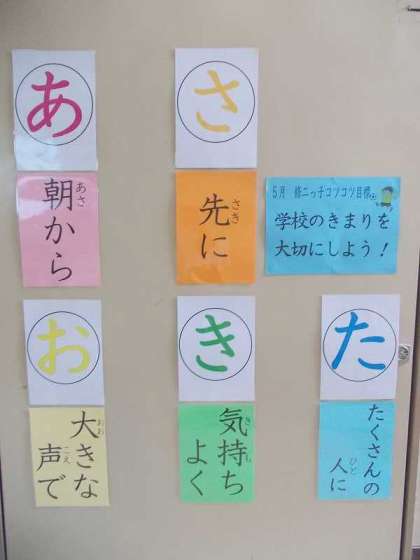 あ
あさ
朝から
さ
さき
先に
5月
コツコツ目標
学校のきまりを
大切にしよう！
お
おお
大きな
こえ
声で
き
きも
気持ち
よく
た
たくさんの
ひと
人に